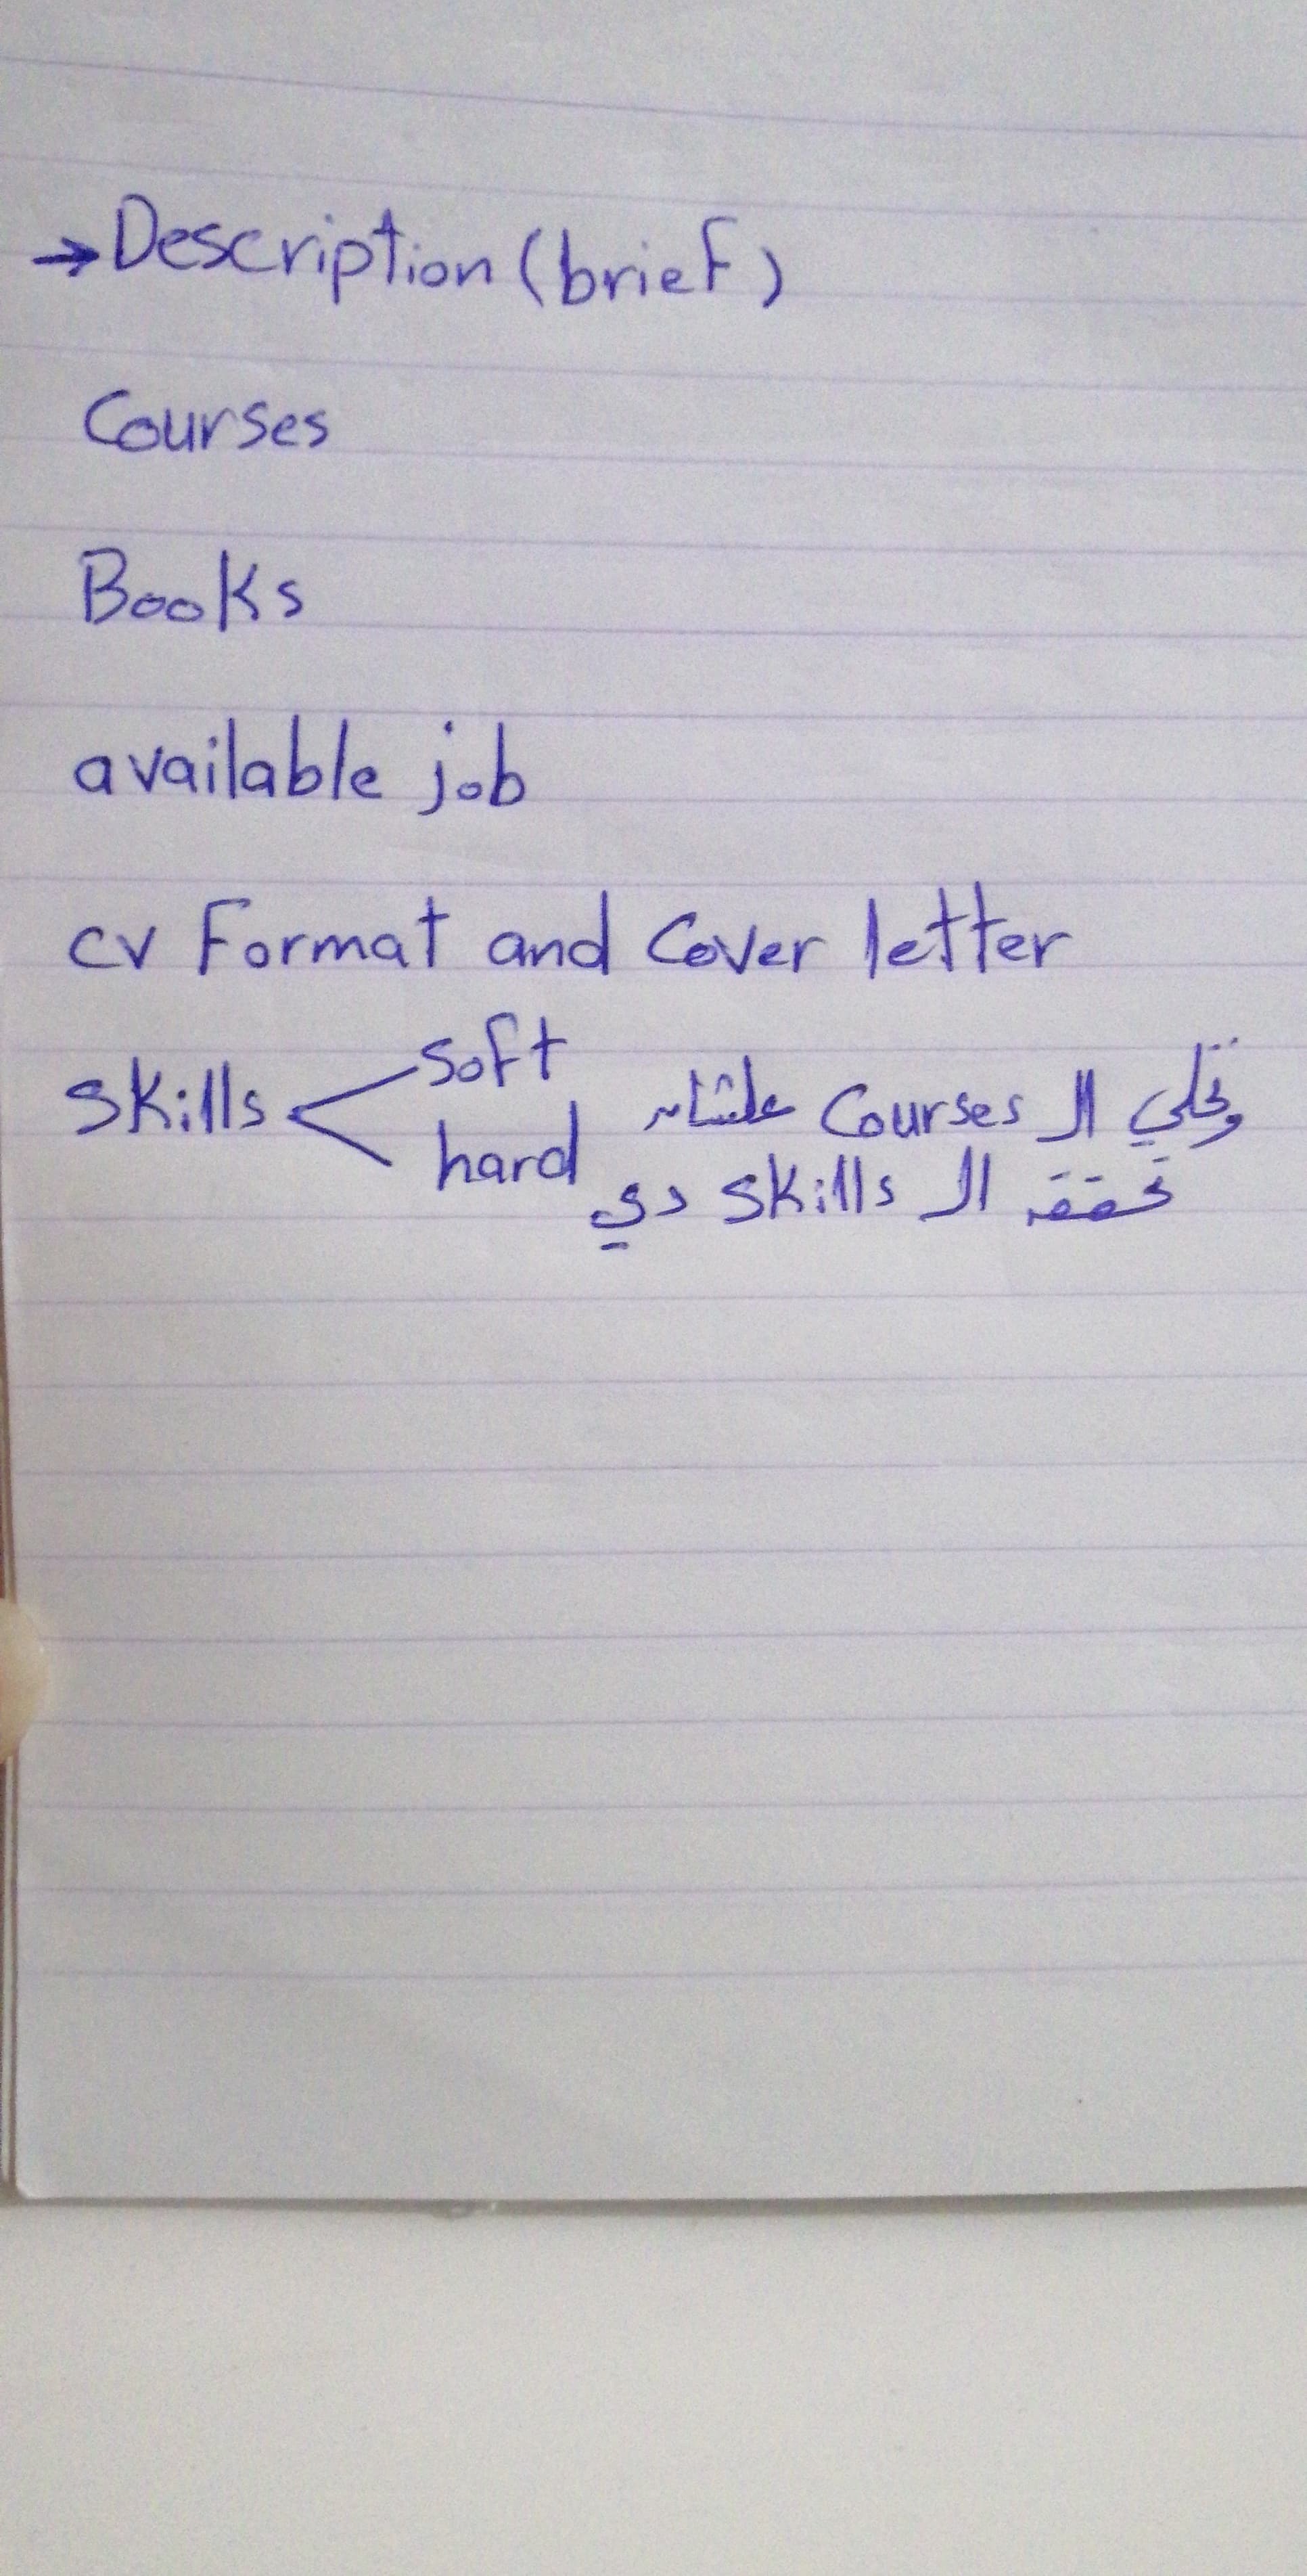 → Description (brief)
Courses
Books
available job
cv Format and Cover letter
Skills < soft
hard
ونخلي ال Courses علشان
نحقق ال skills دي